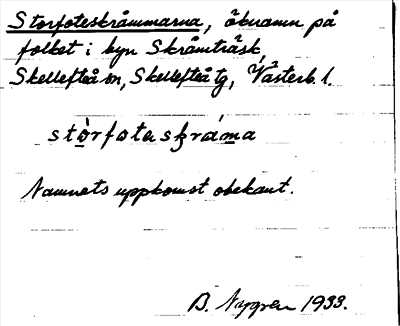 Storfoteskråmmarna, öknamn på
folket i byn Skråmträsk,
Skellefteå sn, Skellefteå tg, Västerb. l.
stòrfotaskráma
Namnets uppkomst obekant.
B. Nygren 1933.